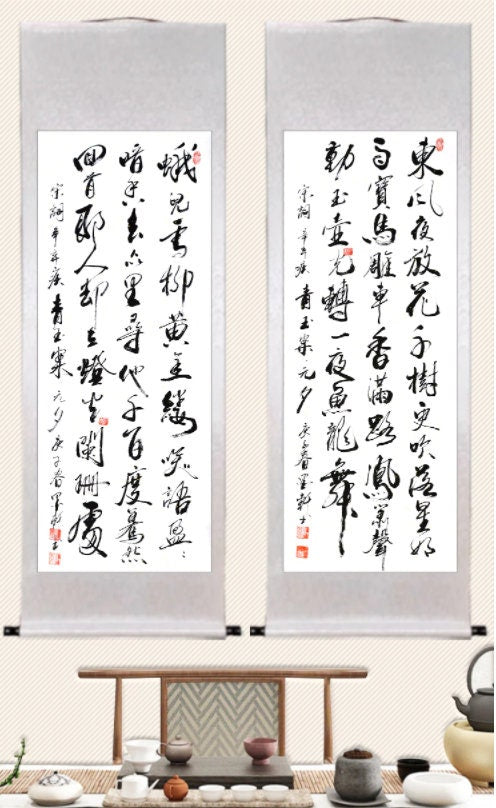 東风夜放花千樹更吹落星如
雨寶馬雕車香滿路鳳簫聲
動玉壺光轉一夜魚龍舞
宋詞 辛弃疾 青玉案 元夕 庚子春
蛾兒雪柳黃金縷笑語盈〻
暗香去众里尋他千百度驀然
回首那人却在燈火闌珊處
宋詞 辛弃疾 青玉案 元夕 庚子春